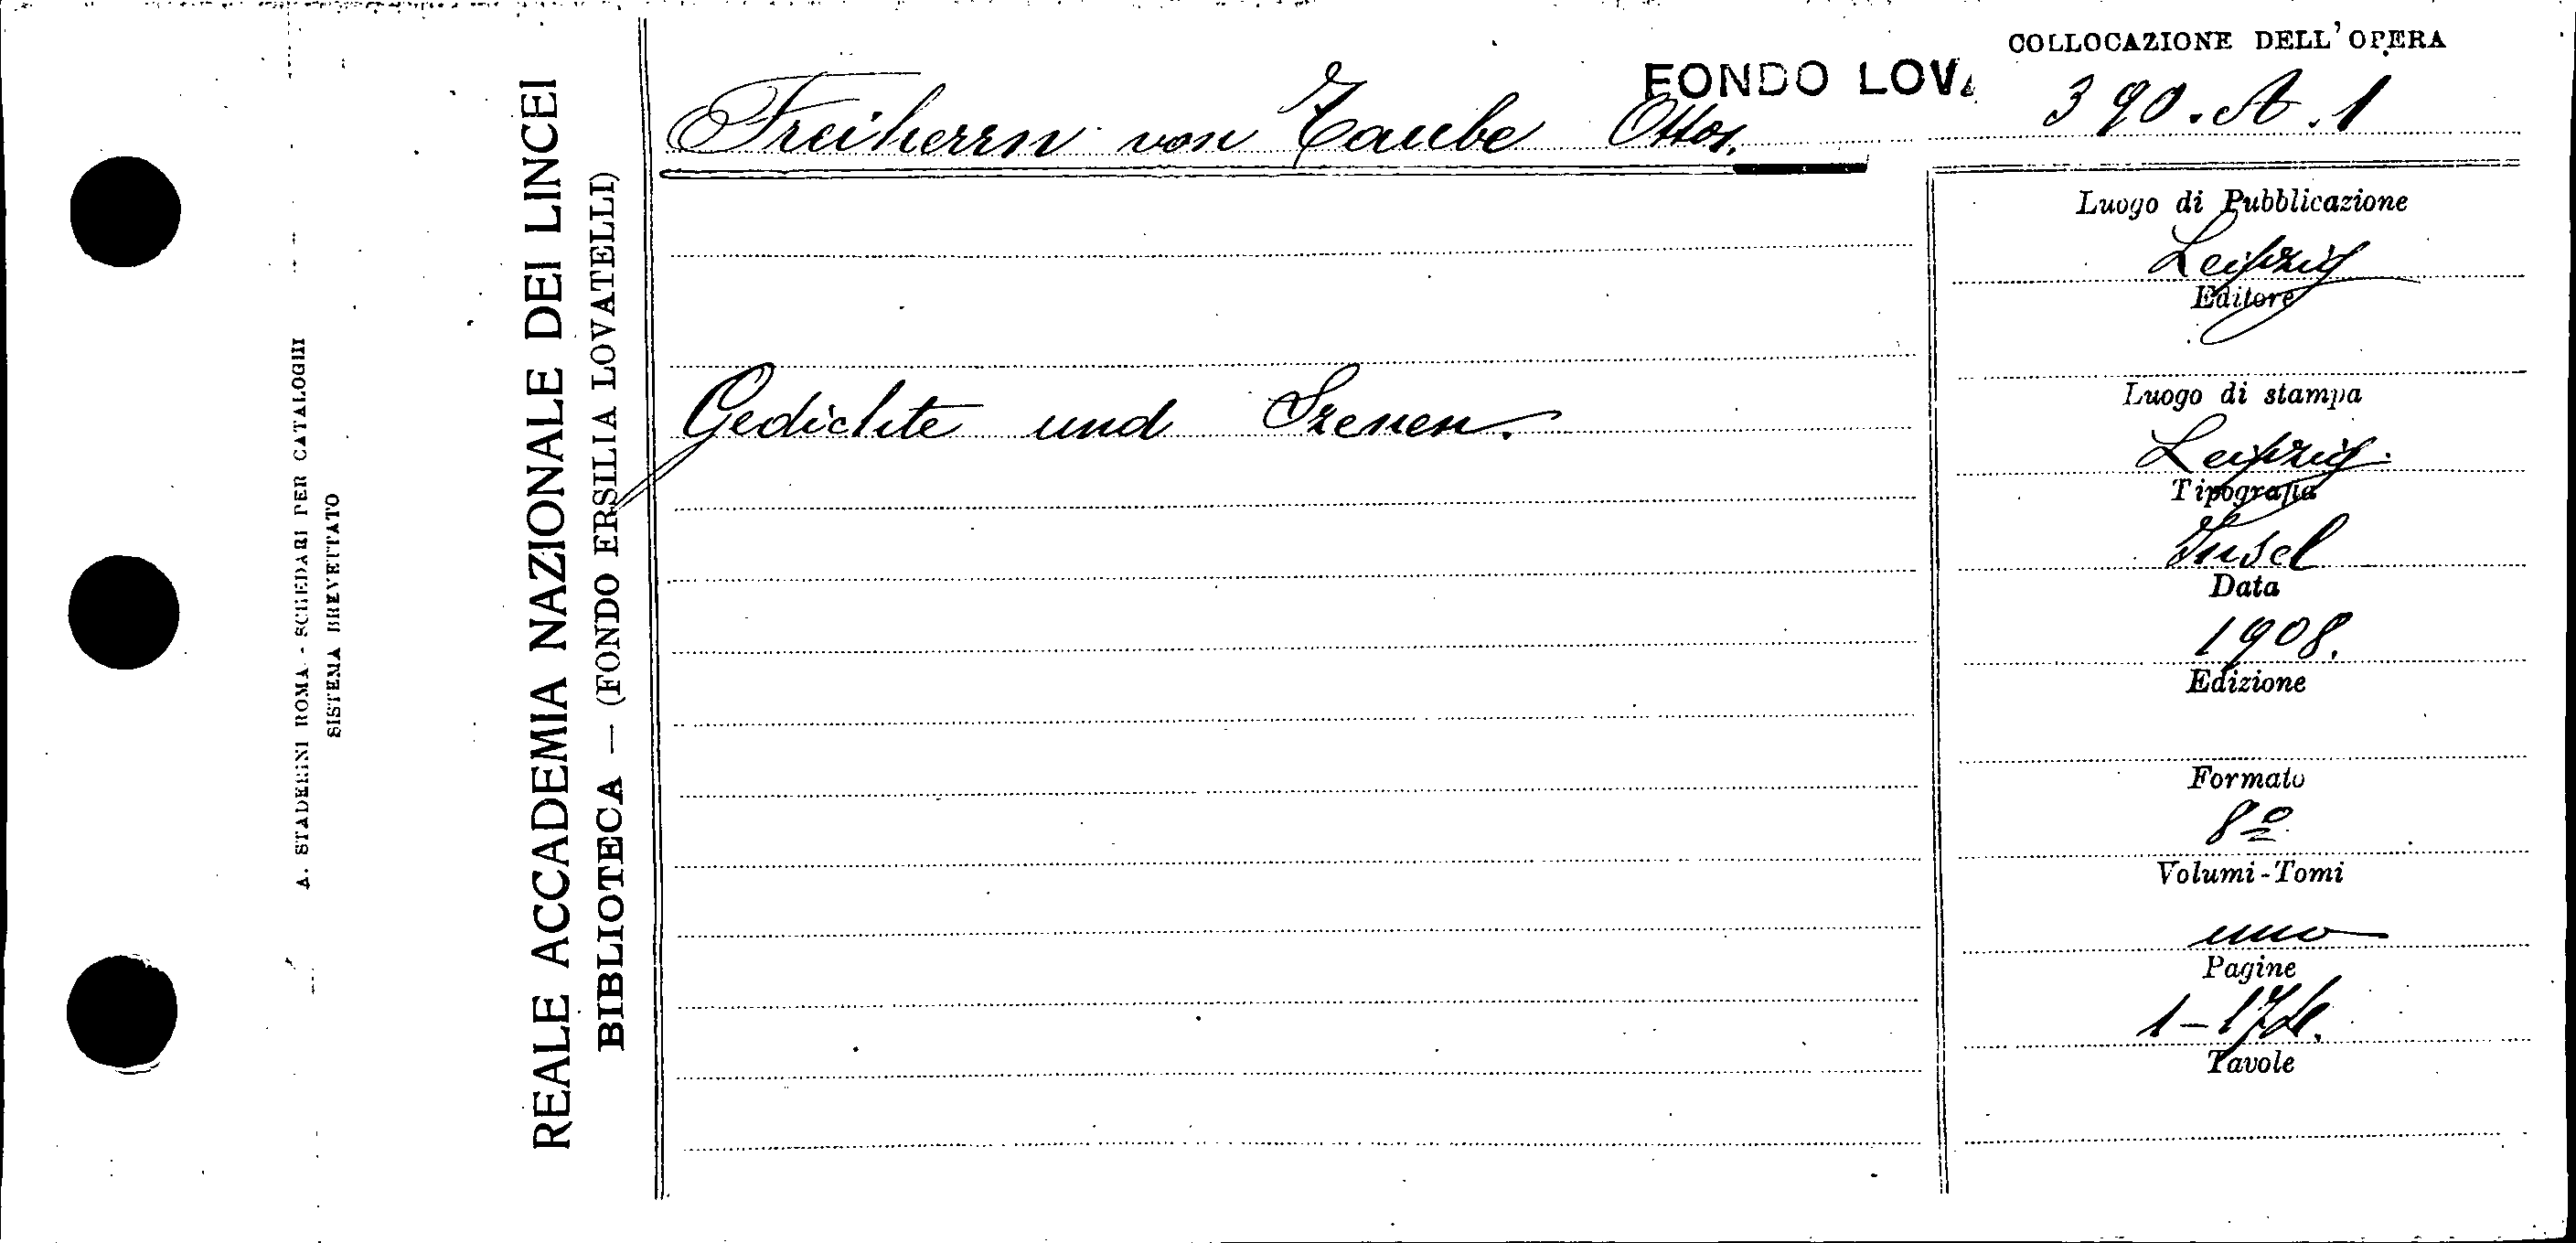 COLLOCAZIONE DELL'OPERA
FONDO LOV
390.A.1
Freiherrn von Taube Otto.
Gedichte und Szenen.
Luogo di Pubblicazione
Leipzig
Editore
Luogo di stampa
Leipzig.
Tipografia
Insel
Data
1908.
Edizione
Formato
8º
Volumi-Tomi
uno
Pagine
1-174.
Tavole
REALE ACCADEMIA NAZIONALE DEI LINCEI
BIBLIOTECA — (FONDO ERSILIA LOVATELLI)
A. STADERINI ROMA - SCHEDARI PER CATALOGHI
SISTEMA BREVETTATO